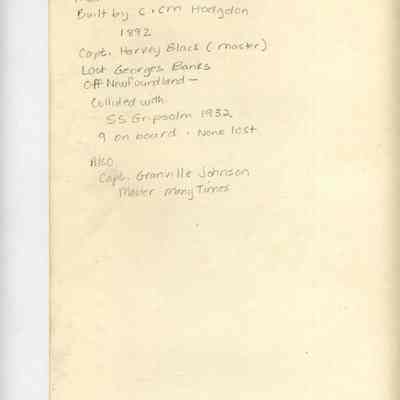 Built by C. & M Hodgdon
1892
Capt. Harvey Black (master)
Lost Georges Banks
Off Newfoundland —
Collided with
SS Gripsolm 1932
9 on board. None lost
Also
Capt. Granville Johnson
Master Many Times